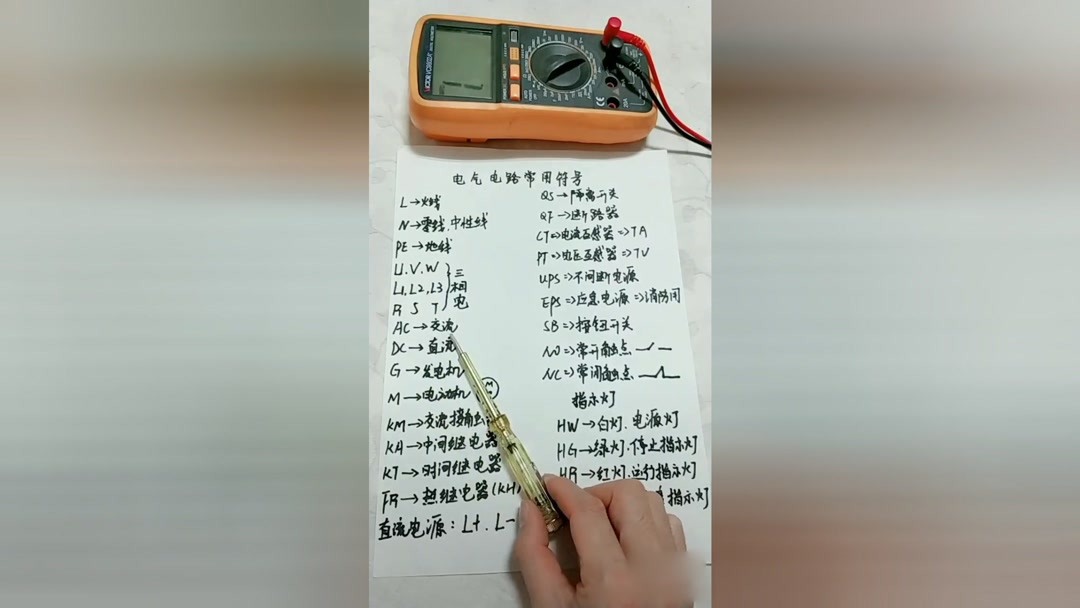 VICTOR VC9802A+
20A
CE
电气电路常用符号
L→火线
N→零线.中性线
PE→地线
U.V.W
L1,L2,L3
R S T
三相电
AC→交流
DC→直流
G→发电机
M→电动机 M
KM→交流接触
KA→中间继电器
KT→时间继电器
FR→热继电器(KH)
直流电源:L+.L-
QS→隔离开关
QF→断路器
CT=>电流互感器=>TA
PT=>电压互感器=>TV
UPS=>不间断电源
EPS=>应急电源=>消防用
SB=>按钮开关
NO=>常开触点
NC=>常闭触点
指示灯
HW→白灯.电源灯
HG→绿灯.停止指示灯
HR→红灯.运行指示灯
指示灯